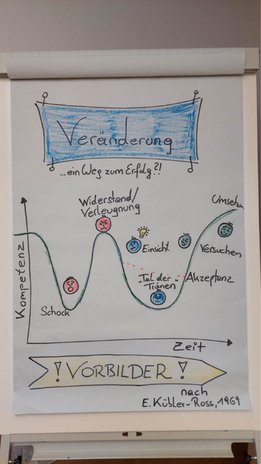 Veränderung
...ein Weg zum Erfolg?!
Widerstand/
Verleugnung
Umsehen
Einsicht
Versuchen
Tal der
Tränen
Akzeptanz
Schock
Kompetenz
Zeit
! VORBILDER !
nach
E. Kübler-Ross, 1969